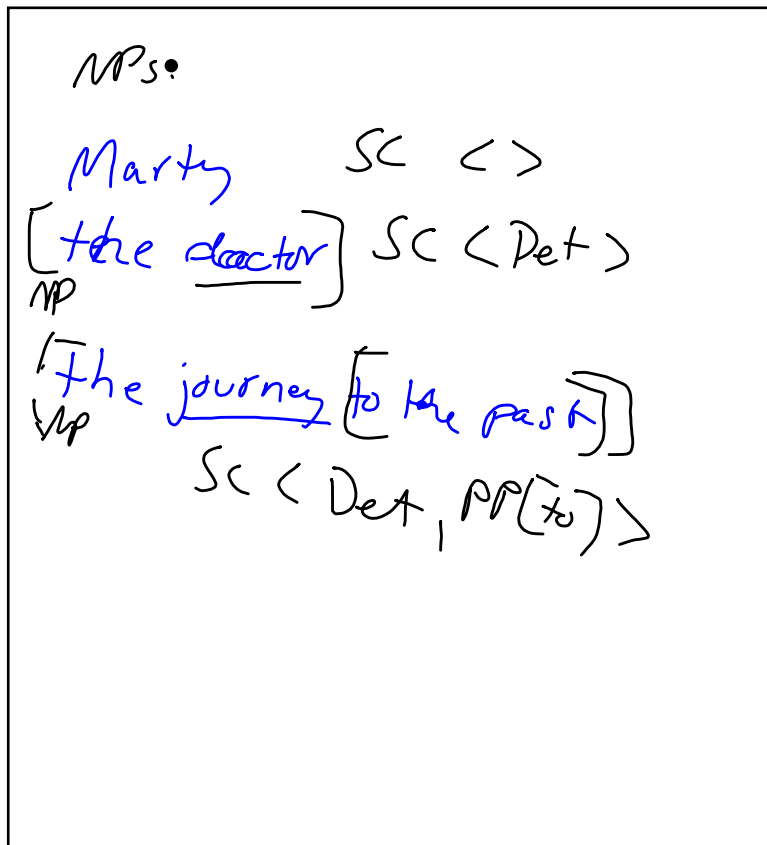 NPs:
Marty SC < >
[NP the doctor] SC < Det >
[NP the journey [to the past]]
SC < Det, PP[to] >